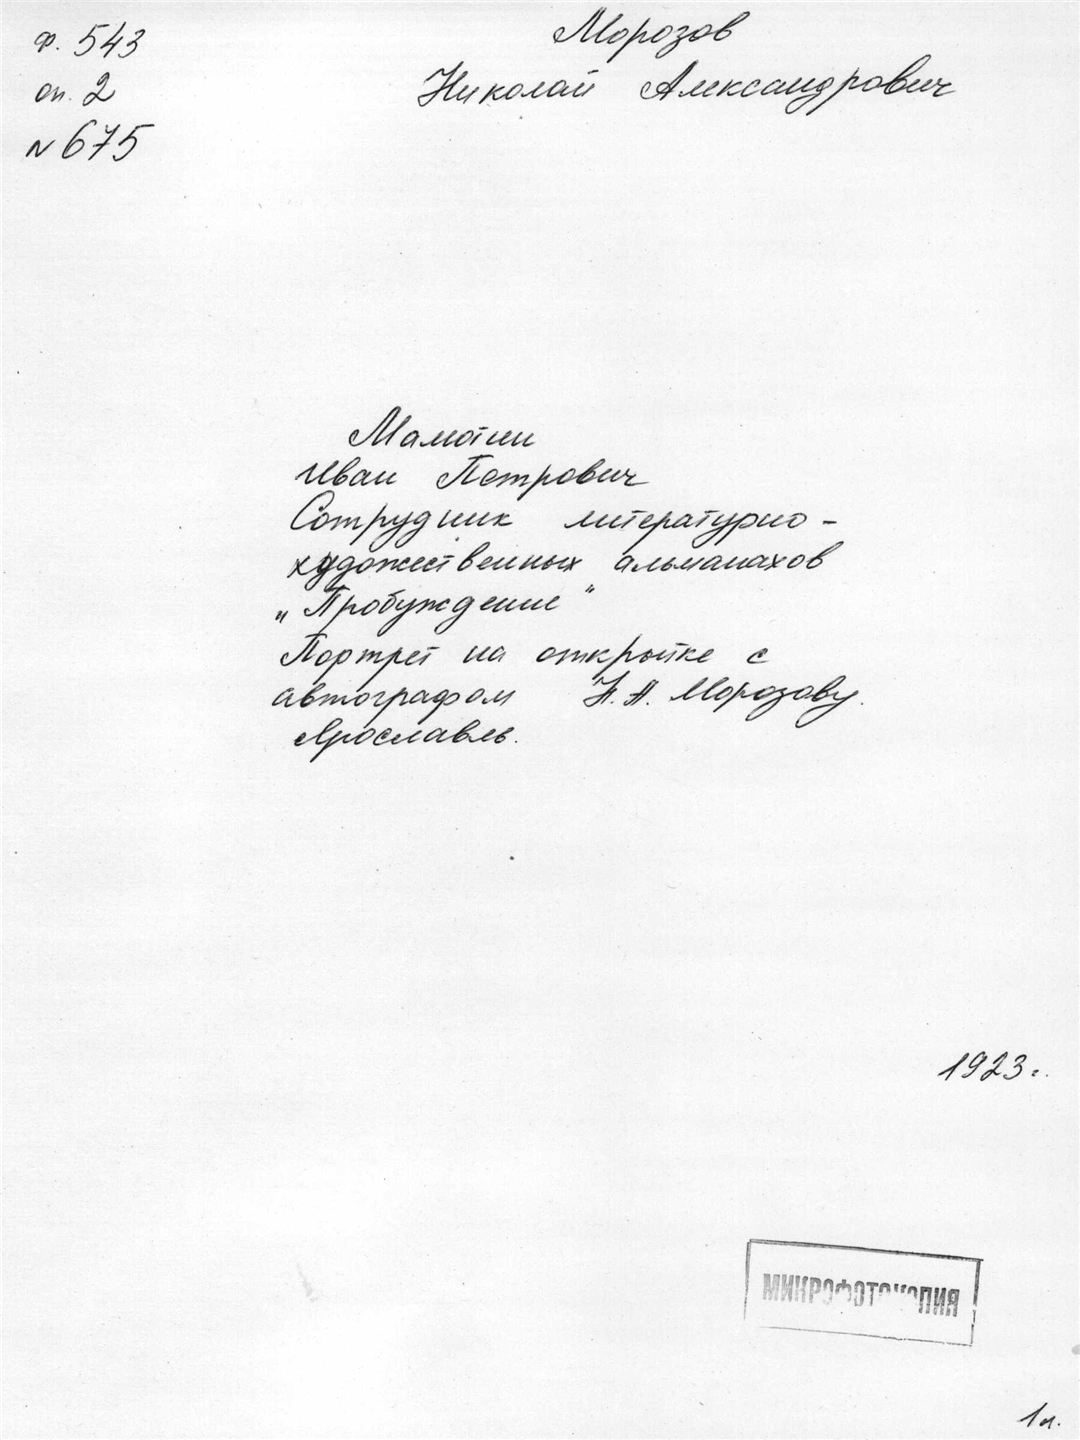 Ф. 543
оп. 2
N 675
Морозов
Николай Александрович
Малютин
Иван Петрович
Сотрудник литературно-
художественных альманахов
„Пробуждение"
Портрет на открытке с
автографом Н.А. Морозову.
Ярославль.
1923 г.
МИКРОФОТОКОПИЯ
1 л.